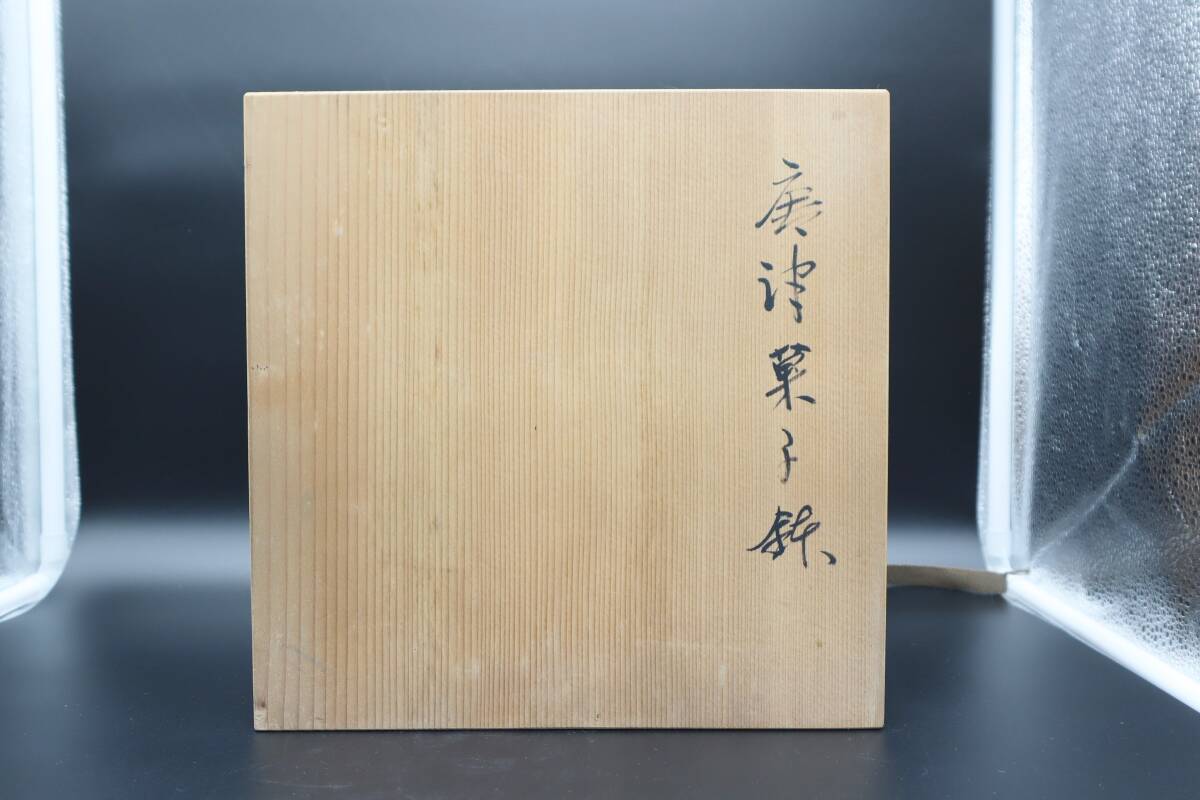 唐津菓子鉢